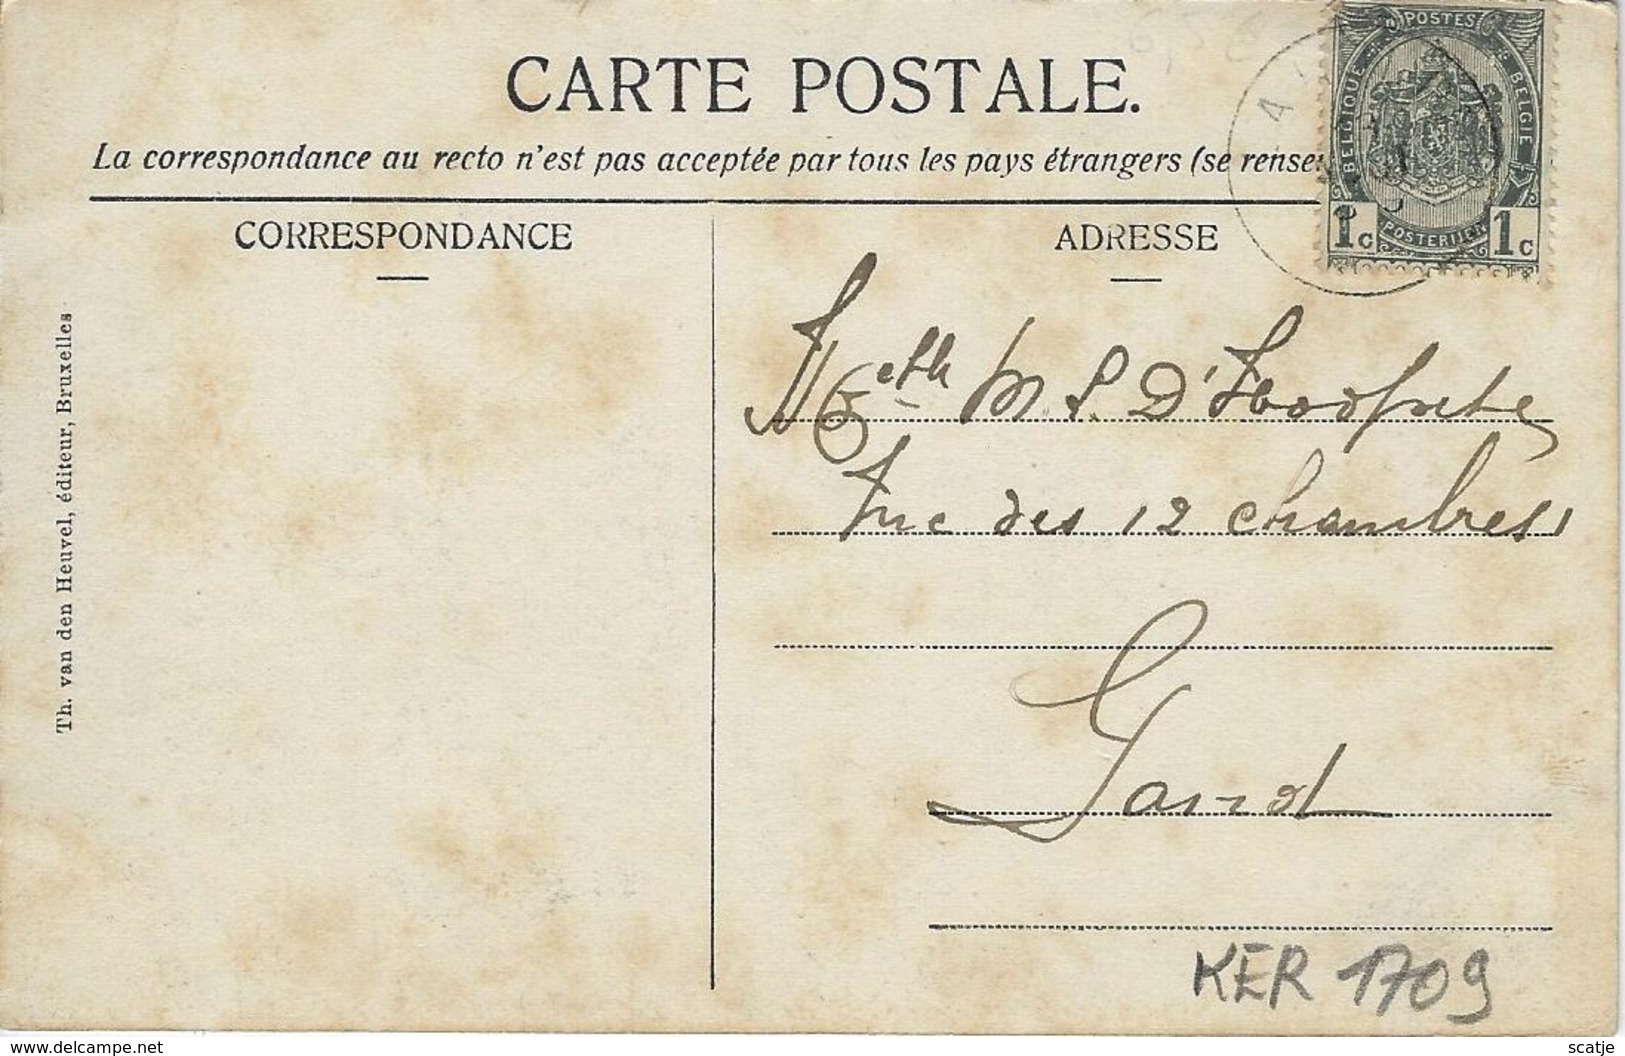 CARTE POSTALE.
La correspondance au recto n'est pas acceptée par tous les pays étrangers (se rense
CORRESPONDANCE
ADRESSE
POSTES
BELGIQUE
BELGIE
POSTERIJEN
1c 1c
M. P. D'
Rue des 12 chambres
Gand
Th. van den Heuvel, éditeur, Bruxelles
KER 1709
delcampe.net
scatje